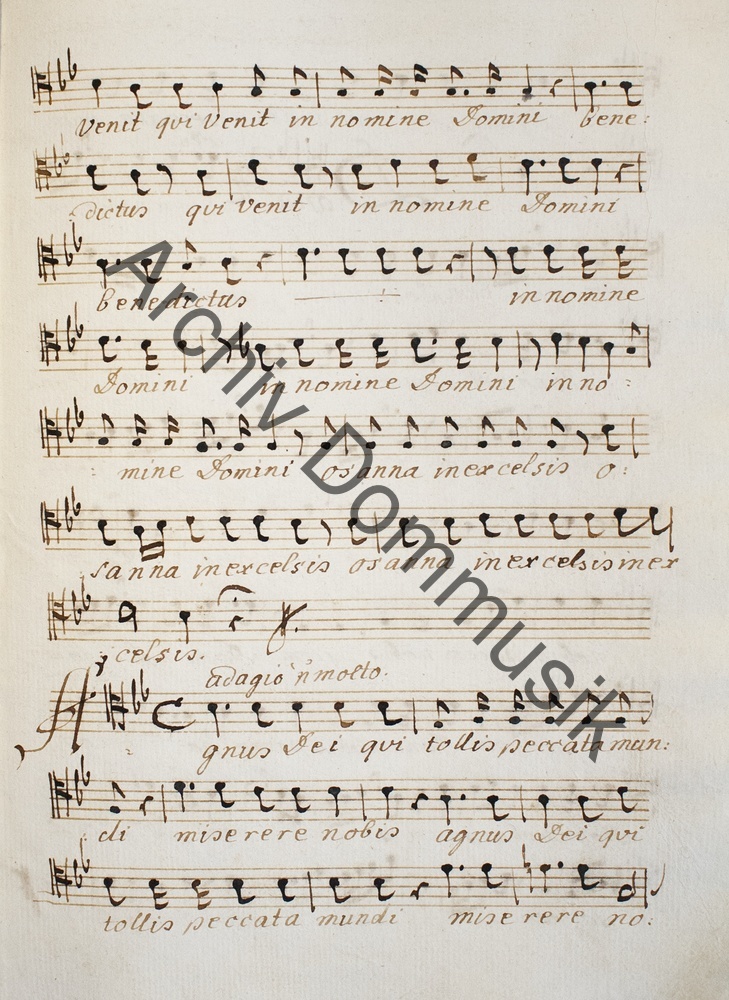 venit qui venit in nomine Domini bene:
dictus qui venit in nomine Domini
benedictus in nomine
Domini in nomine Domini in no:
: mine Domini osanna in excelsis o:
sanna in excelsis osanna in excelsis in ex
celsis.
adagio ñ molto.
A:
gnus Dei qui tollis peccata mun:
: di miserere nobis agnus Dei qui
tollis peccata mundi miserere no:
Archiv Dommusik